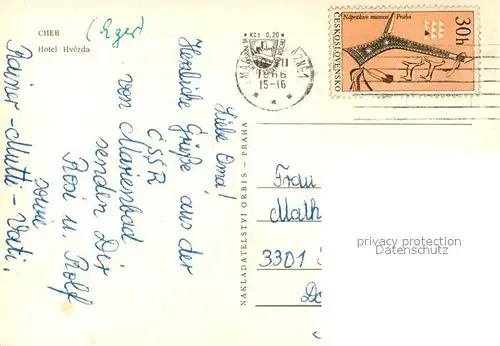 CHEB
(Eger)
Hotel Hvězda
Liebe Oma!
Herzliche Grüße aus der
ČSSR
von Marienbad
senden Dir
Rosi u. Rolf
sowie
Rainer-Mutti-Vati.
NAKLADATELSTVÍ ORBIS - PRAHA
Kčs 0,20
1966
15-16
Náprstkovo museum Praha
ČESKOSLOVENSKO
30h
Frau
Math
3301
privacy protection
Datenschutz